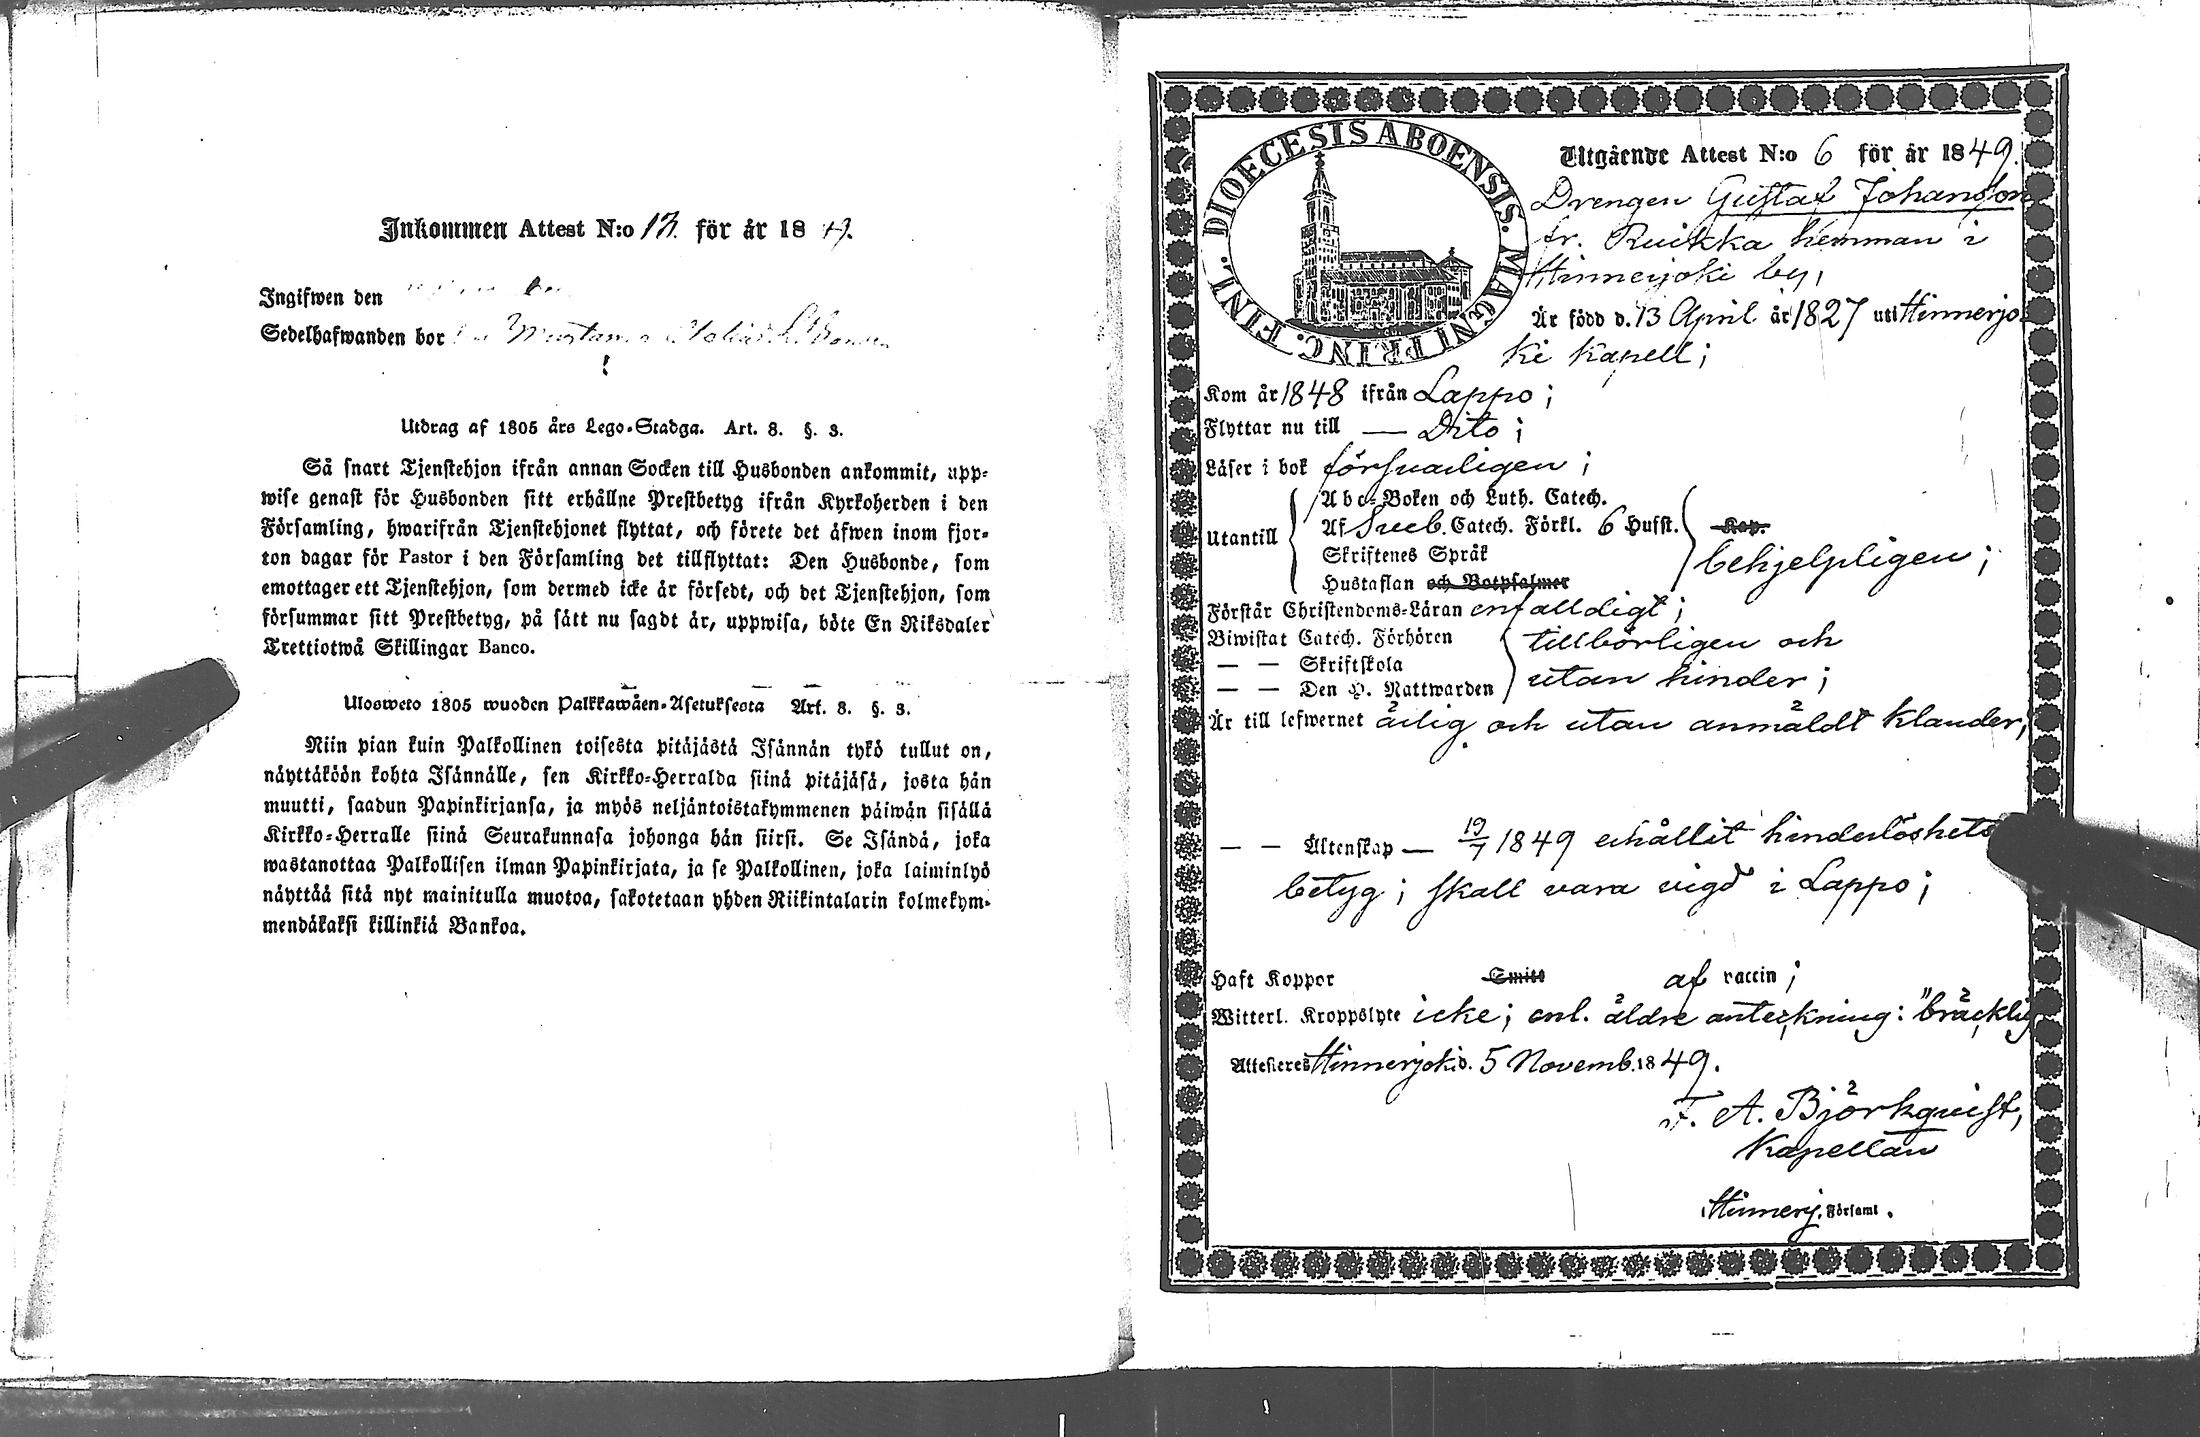 Inkommen Attest N:o 13. för år 18 49.
Ingifwen den
Sedelhafwanden bor
Utdrag af 1805 års Lego-Stadga. Art. 8. §. 3.
Så snart Tjenstehjon ifrån annan Socken till Husbonden ankommit, upp-
wise genast för Husbonden sitt erhållne Prestbetyg ifrån Kyrkoherden i den
Församling, hwarifrån Tjenstehjonet flyttat, och förete det äfwen inom fjor-
ton dagar för Pastor i den Församling det tillflyttat: Den Husbonde, som
emottager ett Tjenstehjon, som dermed icke är försedt, och det Tjenstehjon, som
försummar sitt Prestbetyg, på sätt nu sagdt är, uppwisa, böte En Riksdaler
Trettiotwå Skillingar Banco.
Ulosweto 1805 wuoden Palkkawäen-Asetuksesta Art. 8. §. 3.
Niin pian kuin Palkollinen toisesta pitäjästä Isännän tykö tullut on,
näyttäköön kohta Isännälle, sen Kirkko-Herralda siinä pitäjäsä, josta hän
muutti, saadun Papinkirjansa, ja myös neljäntoistakymmenen päiwän sisällä
Kirkko-Herralle siinä Seurakunnasa johonga hän siirsi. Se Isändä, joka
wastanottaa Palkollisen ilman Papinkirjata, ja se Palkollinen, joka laiminlyö
näyttää sitä nyt mainitulla muotoa, sakotetaan yhden Riikintalarin kolmekym-
mendäkaksi killinkiä Bankoa.
DIOECESIS ABOENSIS. MAGNI PRINC. FINL.
Utgående Attest N:o 6 för år 1849.
Drengen Gustaf Johansson
fr. Ruikka hemman i
Hinnerjoki by,
Är född d. 13 April år 1827 uti Hinnerjo
ki Kapell;
Kom år 1848 ifrån Lappo;
Flyttar nu till — Dito;
Läser i bok försvarligen;
Abc-Boken och Luth. Catech.
Utantill Af Sveb. Catech. Förkl. 6 Hufst. Kap.
Skriftenes Språk behjelpligen;
Hustaflan och Botpsalmer
Förstår Christendoms-Läran enfalldigt;
Biwistat Catech. Förhören tillbörligen och
— — Skriftskola
— — Den H. Nattwarden utan hinder;
Är till lefwernet ärlig och utan anmäldt klander,
— — Äktenskap — 19/7 1849 erhållit hinderlöshets
betyg; skall vara vigd i Lappo;
Haft Koppor Smitt af vaccin;
Witterl. Kroppslyte icke; enl. äldre anteckning: "bräcklig
Attesteres Hinnerjoki d. 5 Novemb. 1849.
F. A. Björkqvist,
Kapellan
Hinnerj. Församl.